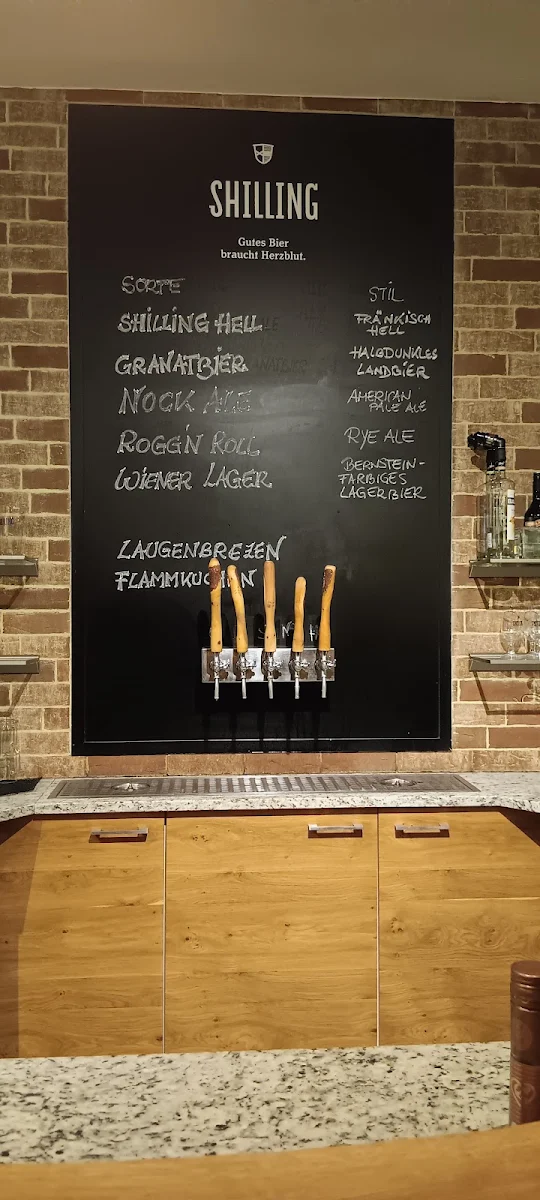 SHILLING
Gutes Bier
braucht Herzblut.
SORTE STIL
SHILLING HELL FRÄNKISCH
HELL
GRANATBIER HALBDUNKLES
LANDBIER
NOCK ALE AMERICAN
PALE ALE
ROGG'N ROLL RYE ALE
WIENER LAGER BERNSTEIN-
FARBIGES
LAGERBIER
LAUGENBREZEN
FLAMMKUCHEN